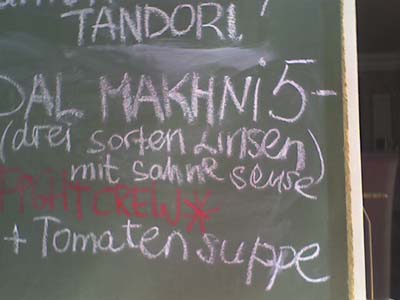 TANDORI
DAL MAKHNi 5-
(drei sorten Linsen)
mit sahne sense)
FIGHTCREW*
+ Tomatensuppe